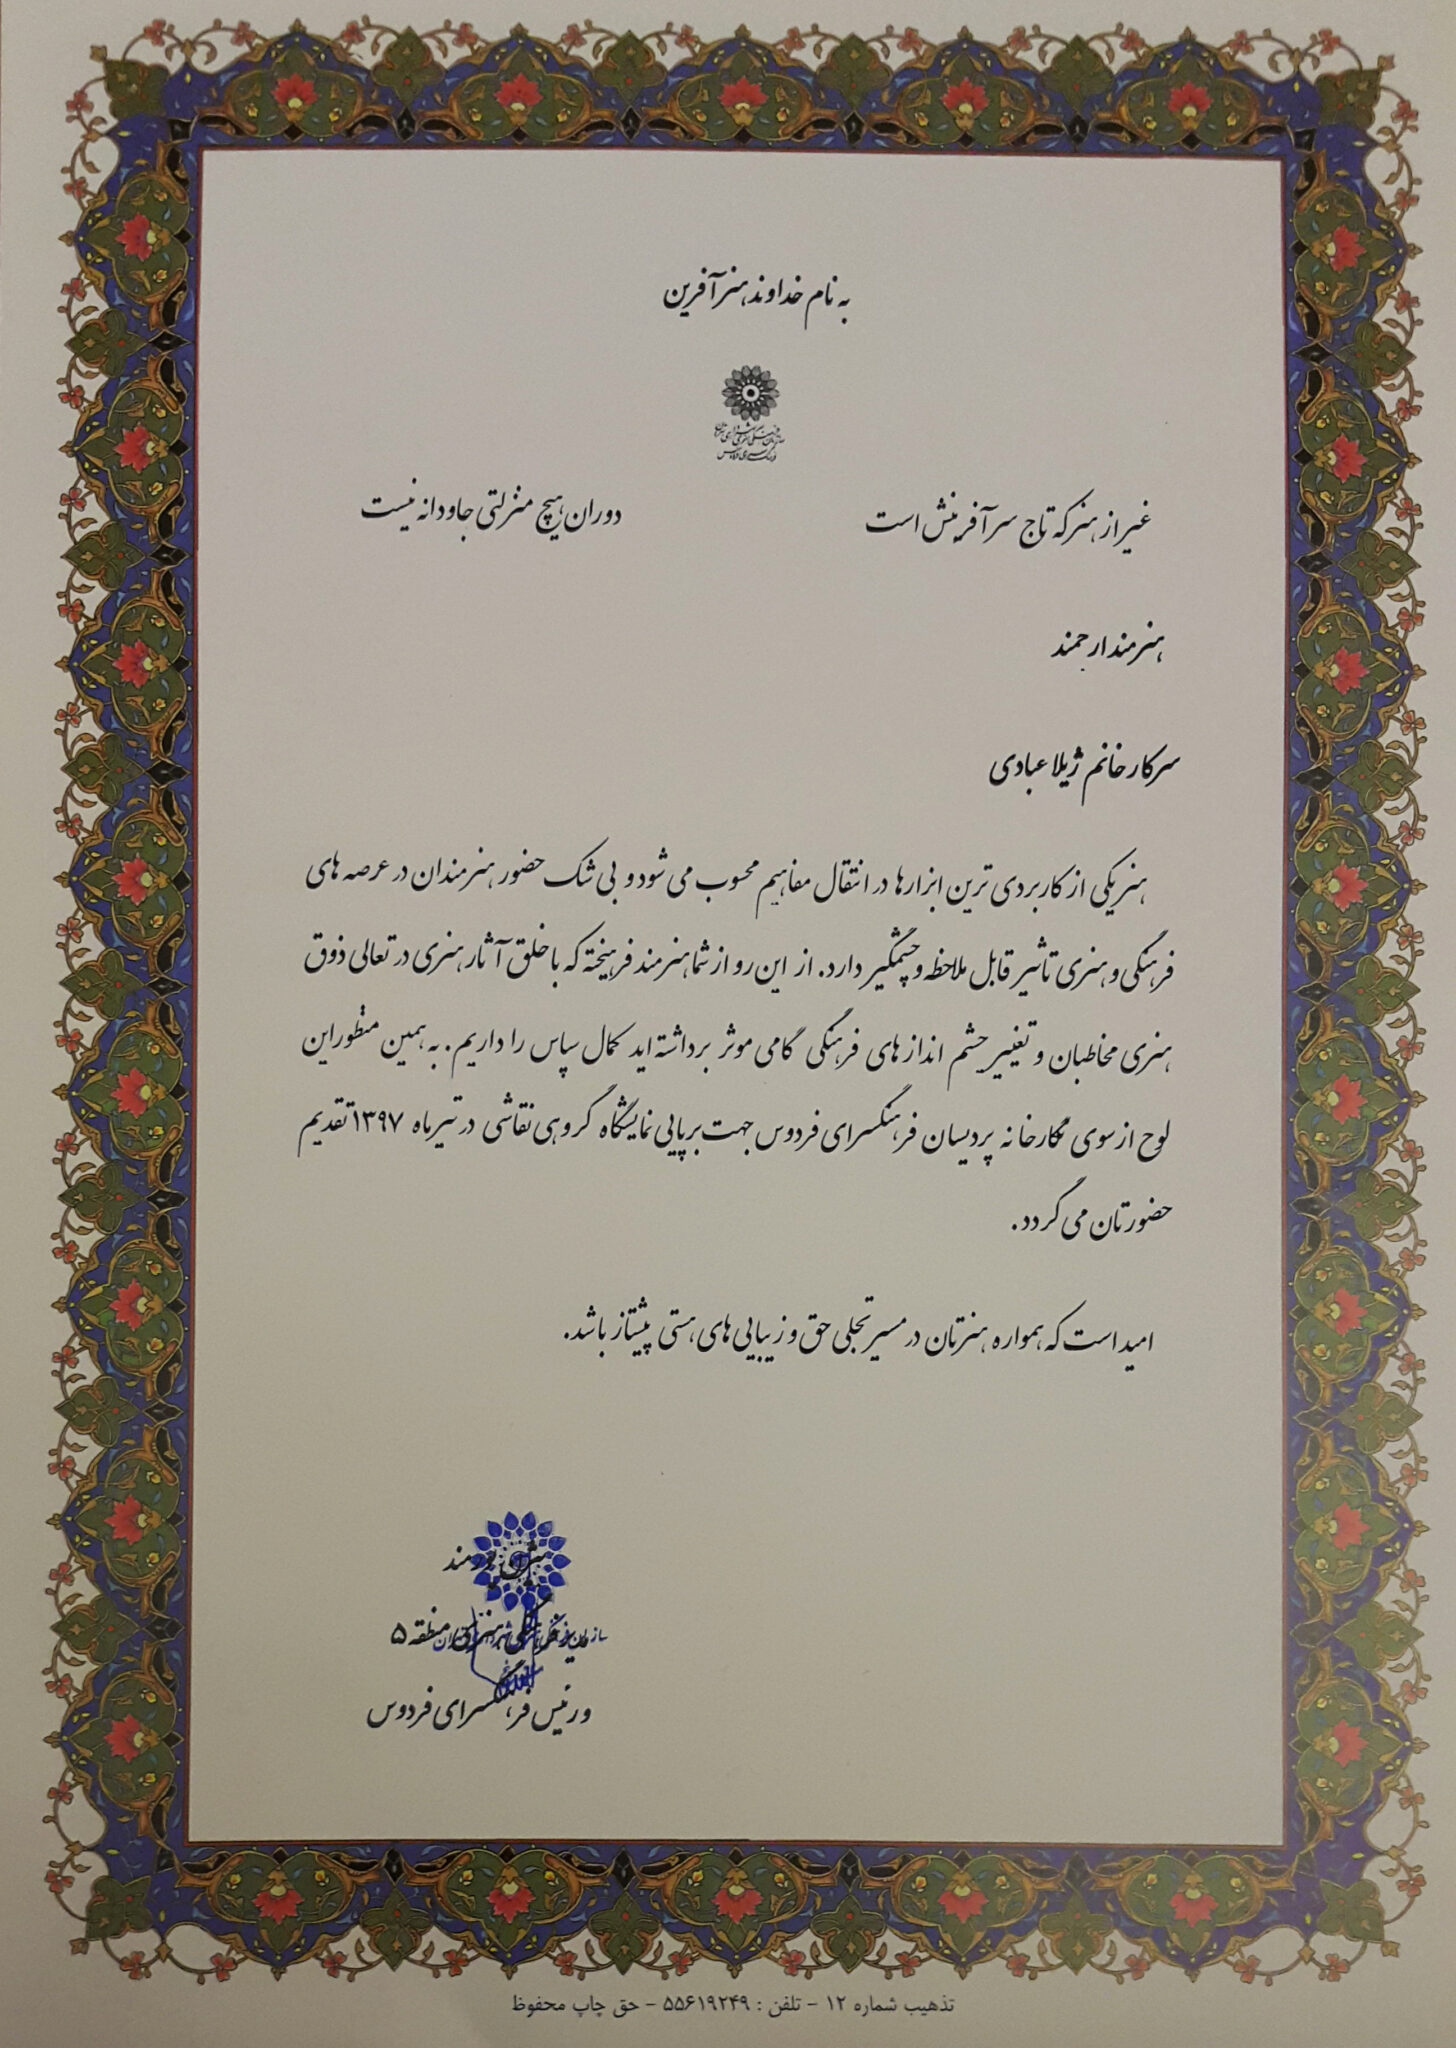 به نام خداوند هنرآفرین
سازمان فرهنگی هنری شهرداری تهران
فرهنگسرای فردوس
غیر از هنر که تاج سر آفرینش است دوران هیچ منزلتی جاودانه نیست
هنرمند ارجمند
سرکار خانم ژیلا عبادی
هنر یکی از کاربردی ترین ابزارها در انتقال مفاهیم محسوب می شود و بی شک حضور هنرمندان در عرصه های
فرهنگی و هنری تاثیر قابل ملاحظه و چشمگیر دارد. از این رو از شما هنرمند فرهیخته که با خلق آثار هنری در تعالی ذوق
هنری مخاطبان و تغییر چشم انداز های فرهنگی گامی موثر برداشته اید کمال سپاس را داریم. به همین منظور این
لوح از سوی نگارخانه پردیسان فرهنگسرای فردوس جهت برپایی نمایشگاه گروهی نقاشی در تیرماه ۱۳۹۷ تقدیم
حضورتان می گردد.
امید است که همواره هنرتان در مسیر تجلی حق و زیبایی های هستی پیشتاز باشد.
پورمند
مدیر فرهنگی هنری منطقه ۵
سازمان فرهنگی هنری شهرداری تهران
و رئیس فرهنگسرای فردوس
تذهیب شماره ۱۲ - تلفن : ۵۵۶۱۹۲۴۹ - حق چاپ محفوظ